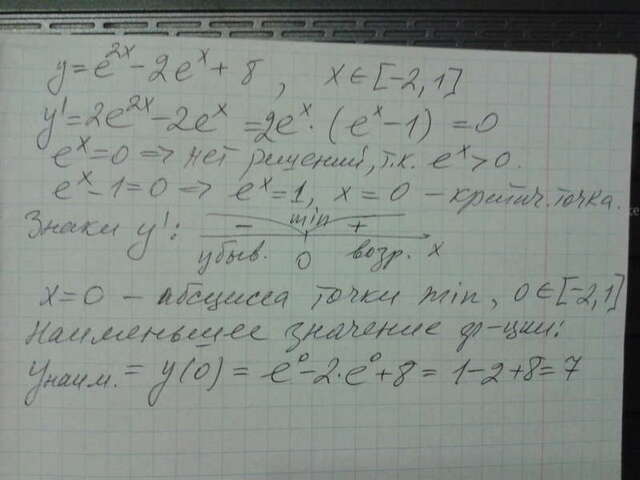 y = e^{2x} - 2e^x + 8, x ∈ [-2, 1]
y' = 2e^{2x} - 2e^x = 2e^x · (e^x - 1) = 0
e^x = 0 => нет рищений, т.к. e^x > 0.
e^x - 1 = 0 => e^x = 1, x = 0 - критич. точка.
Знаки y': - min + x
убыв. 0 возр.
x = 0 - абсцисса точки min, 0 ∈ [-2, 1]
Наименьшее значение ф-ции:
y наим. = y(0) = e^0 - 2·e^0 + 8 = 1 - 2 + 8 = 7